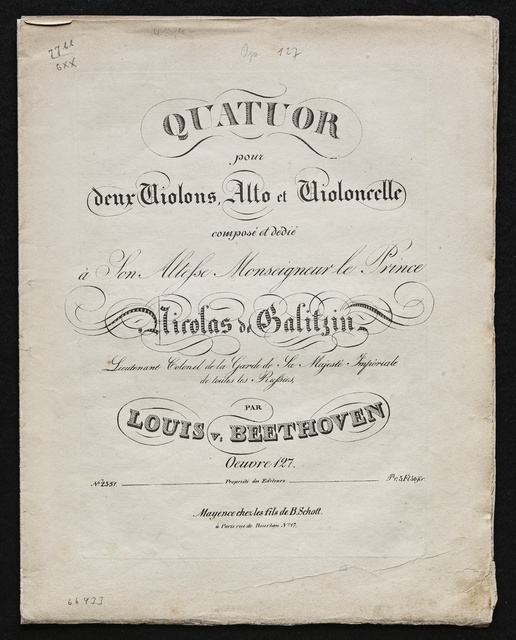 Op 127
QUATUOR
pour
deux Violons, Alto et Violoncelle
composé et dedié
à Son Altesse Monseigneur le Prince
Nicolas de Galitzin,
Lieutenant Colonel de la Garde de Sa Majesté Impériale
de toutes les Russies,
PAR
LOUIS v. BEETHOVEN
Oeuvre 127.
Nº 2351. Propriété des Editeurs Pr.
Mayence chez les fils de B. Schott.
à Paris rue de Bourbon Nº 17.
66433